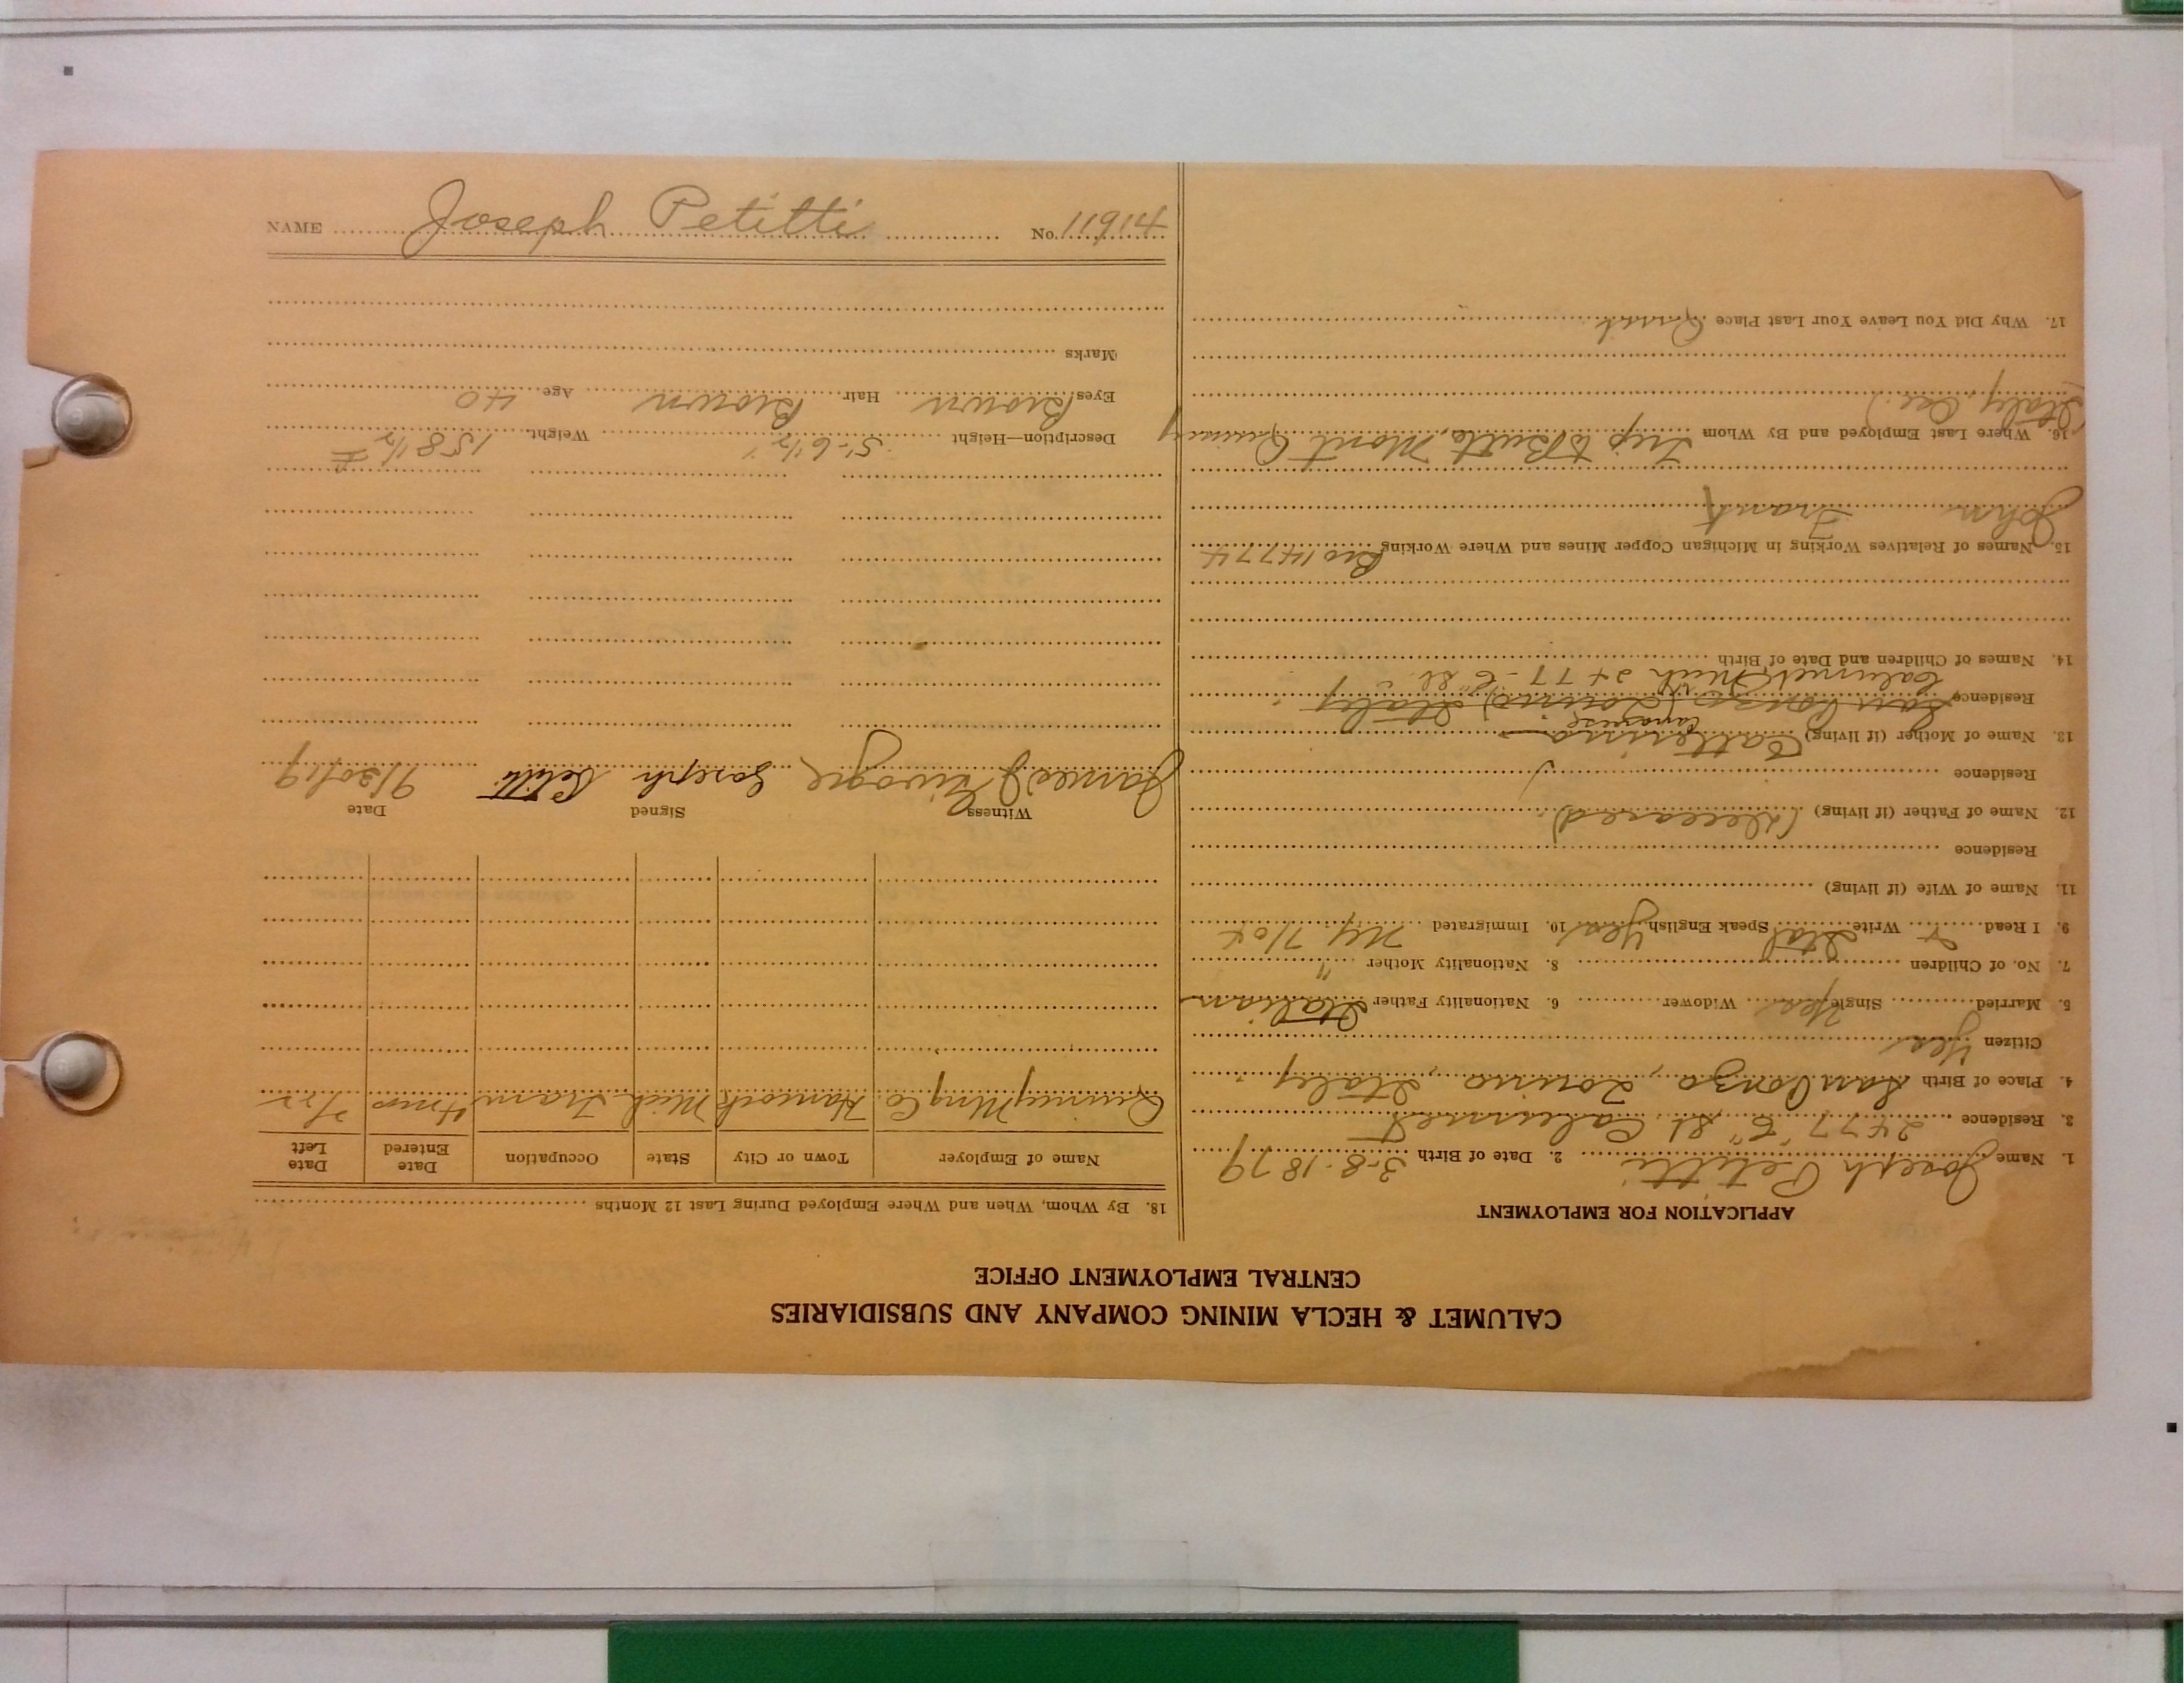 NAME Joseph Petitti No. 11914
CALUMET & HECLA MINING COMPANY AND SUBSIDIARIES
CENTRAL EMPLOYMENT OFFICE
APPLICATION FOR EMPLOYMENT
1. Name Joseph Petitti 2. Date of Birth 3-8-1879
3. Residence 2477 "6" St. Calumet
4. Place of Birth San Ponzo, Torino, Italy
Citizen Yes
5. Married Single Yes Widower 6. Nationality Father Italian
7. No. of Children 8. Nationality Mother "
9. I Read & Write Ital Speak English Yes 10. Immigrated
11. Name of Wife (if living)
Residence
12. Name of Father (if living) (deceased)
Residence
13. Name of Mother (if living) Catterina
Residence San Ponzo (Torino) Italy
Calumet Mich 2477-6" St.
14. Names of Children and Date of Birth
15. Names of Relatives Working in Michigan Copper Mines and Where Working Bro 14774
John
16. Where Last Employed and By Whom Trip to Butte, Mont Quincy
17. Why Did You Leave Your Last Place
18. By Whom, When and Where Employed During Last 12 Months
Name of Employer Town or City State Occupation Date Entered Date Left
Quincy Mng Co. Hancock Mich Tram 4 mos
Witness Signed Date
James Joseph Petitti 9/20/19
Description—Height 5'-6 1/2" Weight 158 1/2 #
Eyes Brown Hair Brown Age 40
Marks